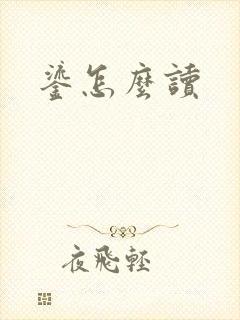 鎏怎麼讀
夜飛輕